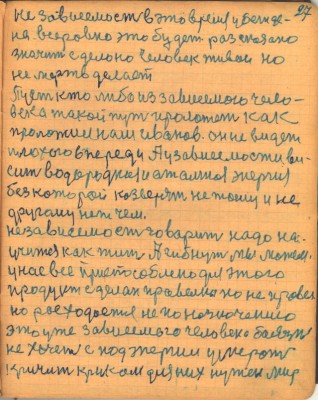 27
не зависемост в это время и бензе-
на всеровно это будет рассказано
значит сделоно человек живой но
не мертв делает
Пуст кто либо из зависемого чело-
века такой пут проложет как
проложил нам иванов. он не видет
плохого впереди А у зависемости ви-
сит водородная и атамная энергия
без которой козверят не тому и не
другому нет чем.
независемост говорит надо на-
учится как жит А гибнут мы можем.
у нас все приспособлено для этого
продукт сделан правелно но не
но росходается не по нозночению
это уже зависемого человека
не хочет с под энергии умерат
кричит криком для них нужен мир